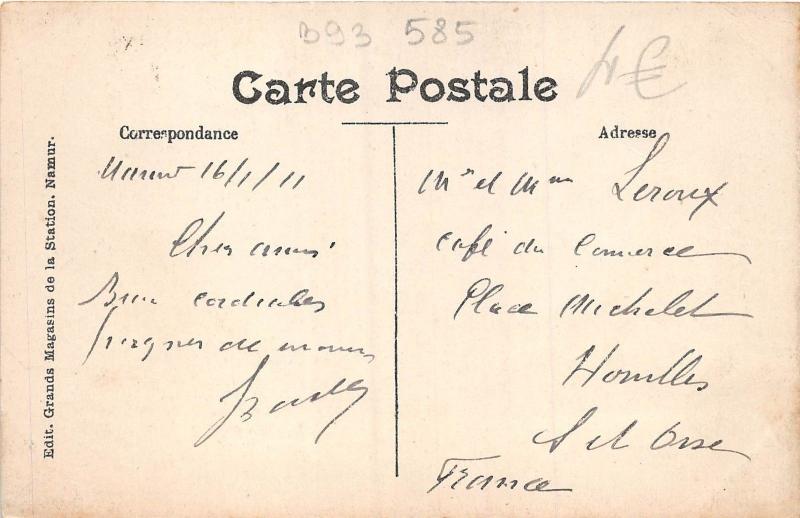 B93 585
4€
Carte Postale
Correspondance
Adresse
Edit. Grands Magasins de la Station. Namur.
Namur 16/1/11
Chers amis
Bien cordiales
poignées de mains
Mr et Mme Leroux
Café du Comerce
Place Michelet
Houilles
S et Oise
France